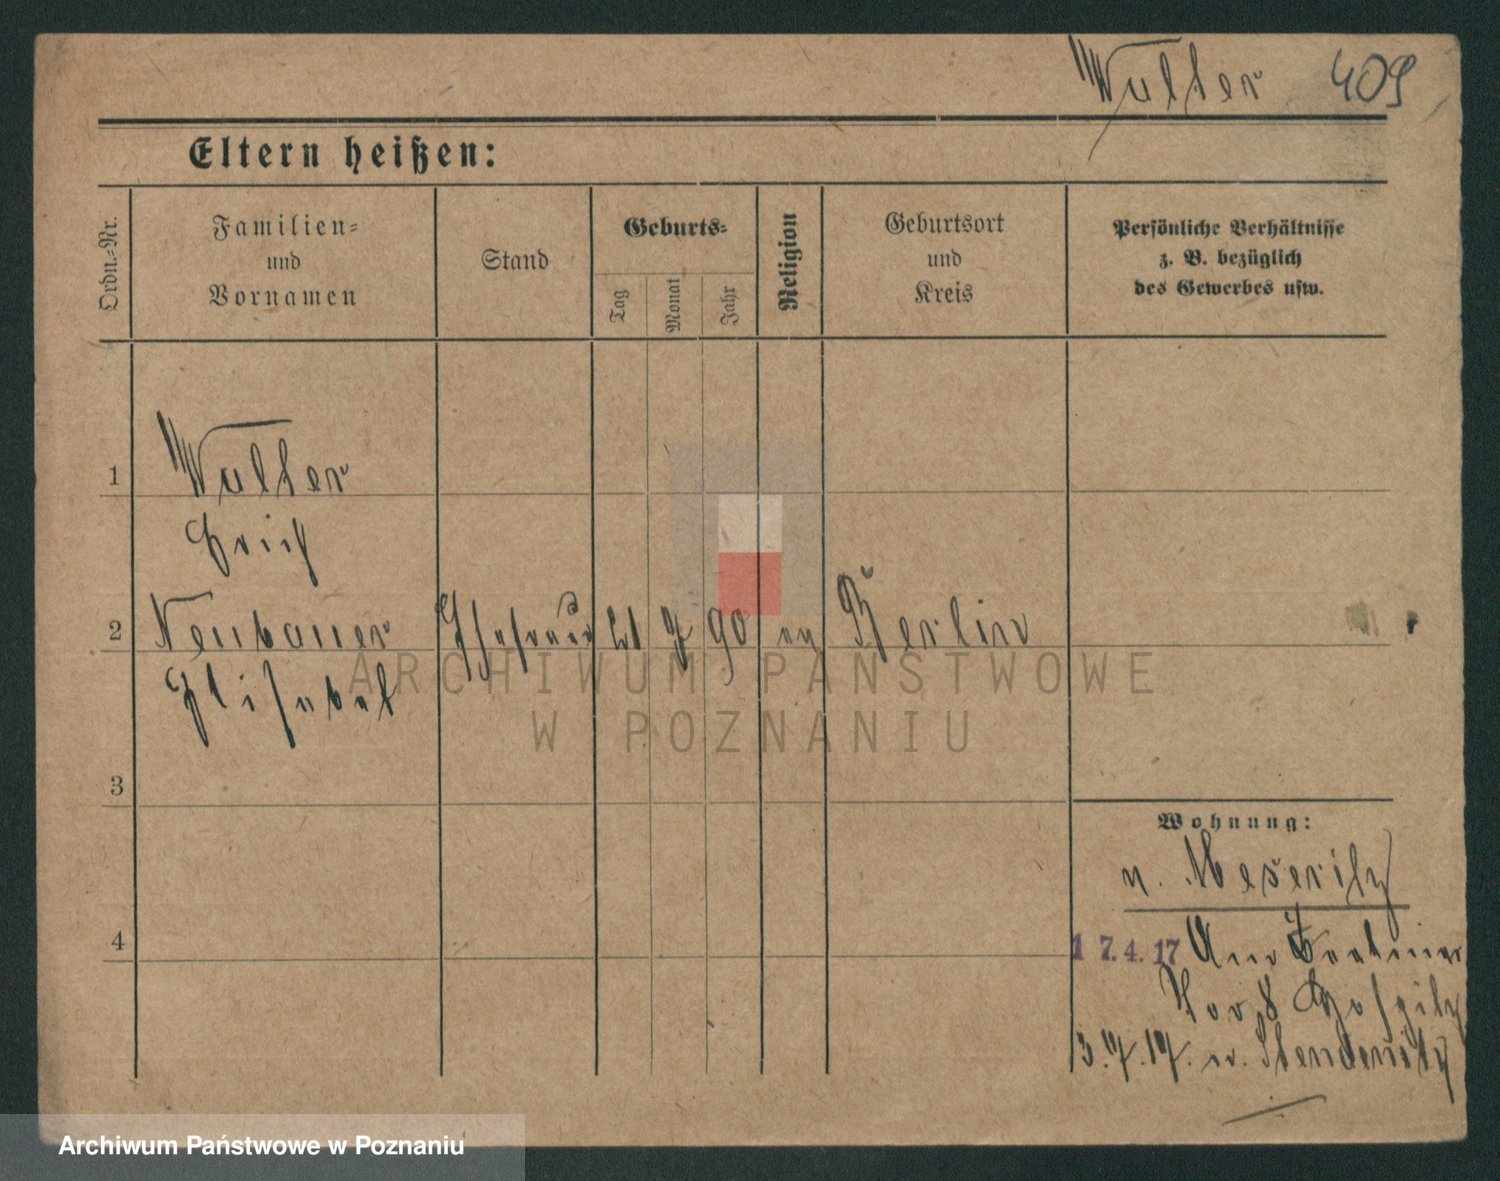 Wutker 409
Eltern heißen:
Ordn.-Nr.
Familien-
und
Vornamen
Stand
Geburts-
Tag
Monat
Jahr
Religion
Geburtsort
und
Kreis
Persönliche Verhältnisse
z. B. bezüglich
des Gewerbes usw.
1
Erich
2 Neubauer Ehefrau 21 7 90 ev Berlin
Elisabet
3
Wohnung:
n. Meseritz
4
17.4.17 Am
Hospitz
3.7.17. n.
ARCHIWUM PAŃSTWOWE
W POZNANIU
Archiwum Państwowe w Poznaniu